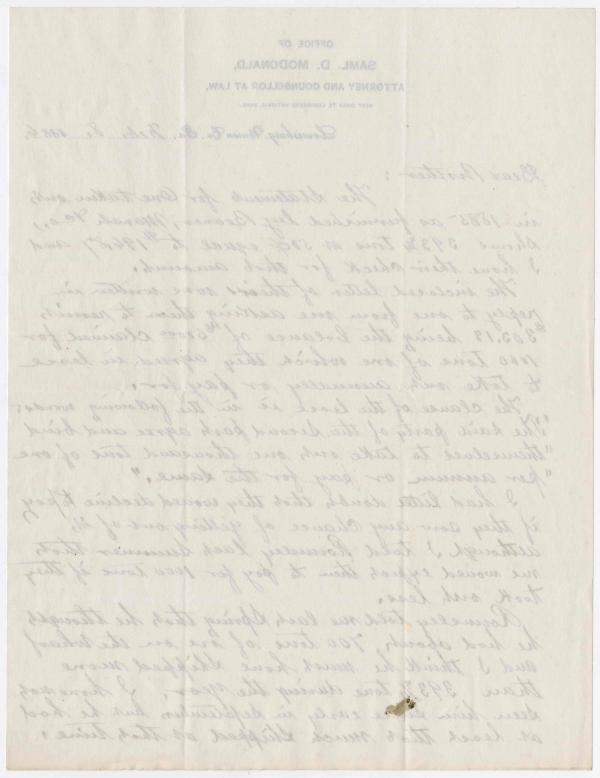 OFFICE OF
SAML. D. McDONALD,
ATTORNEY AND COUNSELLOR AT LAW,
Lewisburg, Union Co. Pa. Feb. 8, 1886.
Dear Brother:
The Statement for Ore taken out
in 1885 as furnished by Beaver, Marsh &c.,
shows 393¾ tons at 50¢ equal to $196.87 and
I have their check for that amount.
The inclosed letter of theirs was written in
reply to one from me asking them to remit
$303.13 being the balance of $500.00 claimed for
1000 tons of ore which they agreed in lease
to take out annually or pay for.
The clause of the lease is in the following words:
"The said party of the second part agree and bind
"themselves to take out one thousand tons of ore
"per annum or pay for the same."
I had little doubt that they would decline to pay
if they saw any chance of getting out of it,
although I told Rommeley last Summer that
we would expect them to pay for 1000 tons if they
took out less.
Rommeley told me last Spring that he thought
he had about 700 tons of ore on the wharf
and I think he must have shipped more
than 393¾ tons during the year. I have not
seen him since early in September but he had
at least that much shipped at that time.